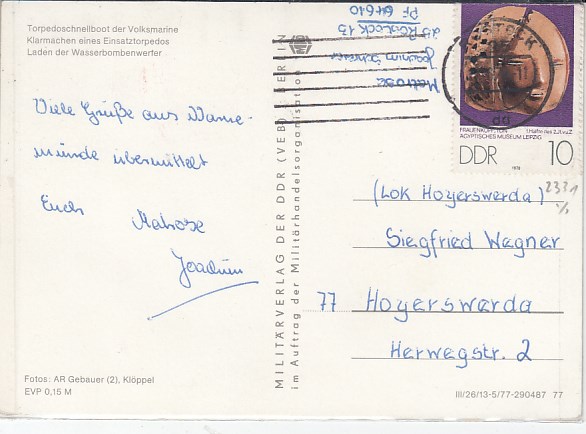 Torpedoschnellboot der Volksmarine
Klarmachen eines Einsatztorpedos
Laden der Wasserbombenwerfer
Viele Grüße aus Warne-
münde übermittelt
Euch Matrose
Joachim
Fotos: AR Gebauer (2), Klöppel
EVP 0,15 M
MILITÄRVERLAG DER DDR (VEB) BERLIN
im Auftrag der Militärhandelsorganisation
Matrose
Joachim
25 Rostock 15
PF 61610
FRAUENKOPF, TON
ÄGYPTISCHES MUSEUM LEIPZIG
1. Hälfte des 2. Jt. v. u. Z.
DDR 10
1978
(Lok Hoyerswerda)
2331
Siegfried Wagner
77 Hoyerswerda
Herwegstr. 2
III/26/13-5/77-290487 77